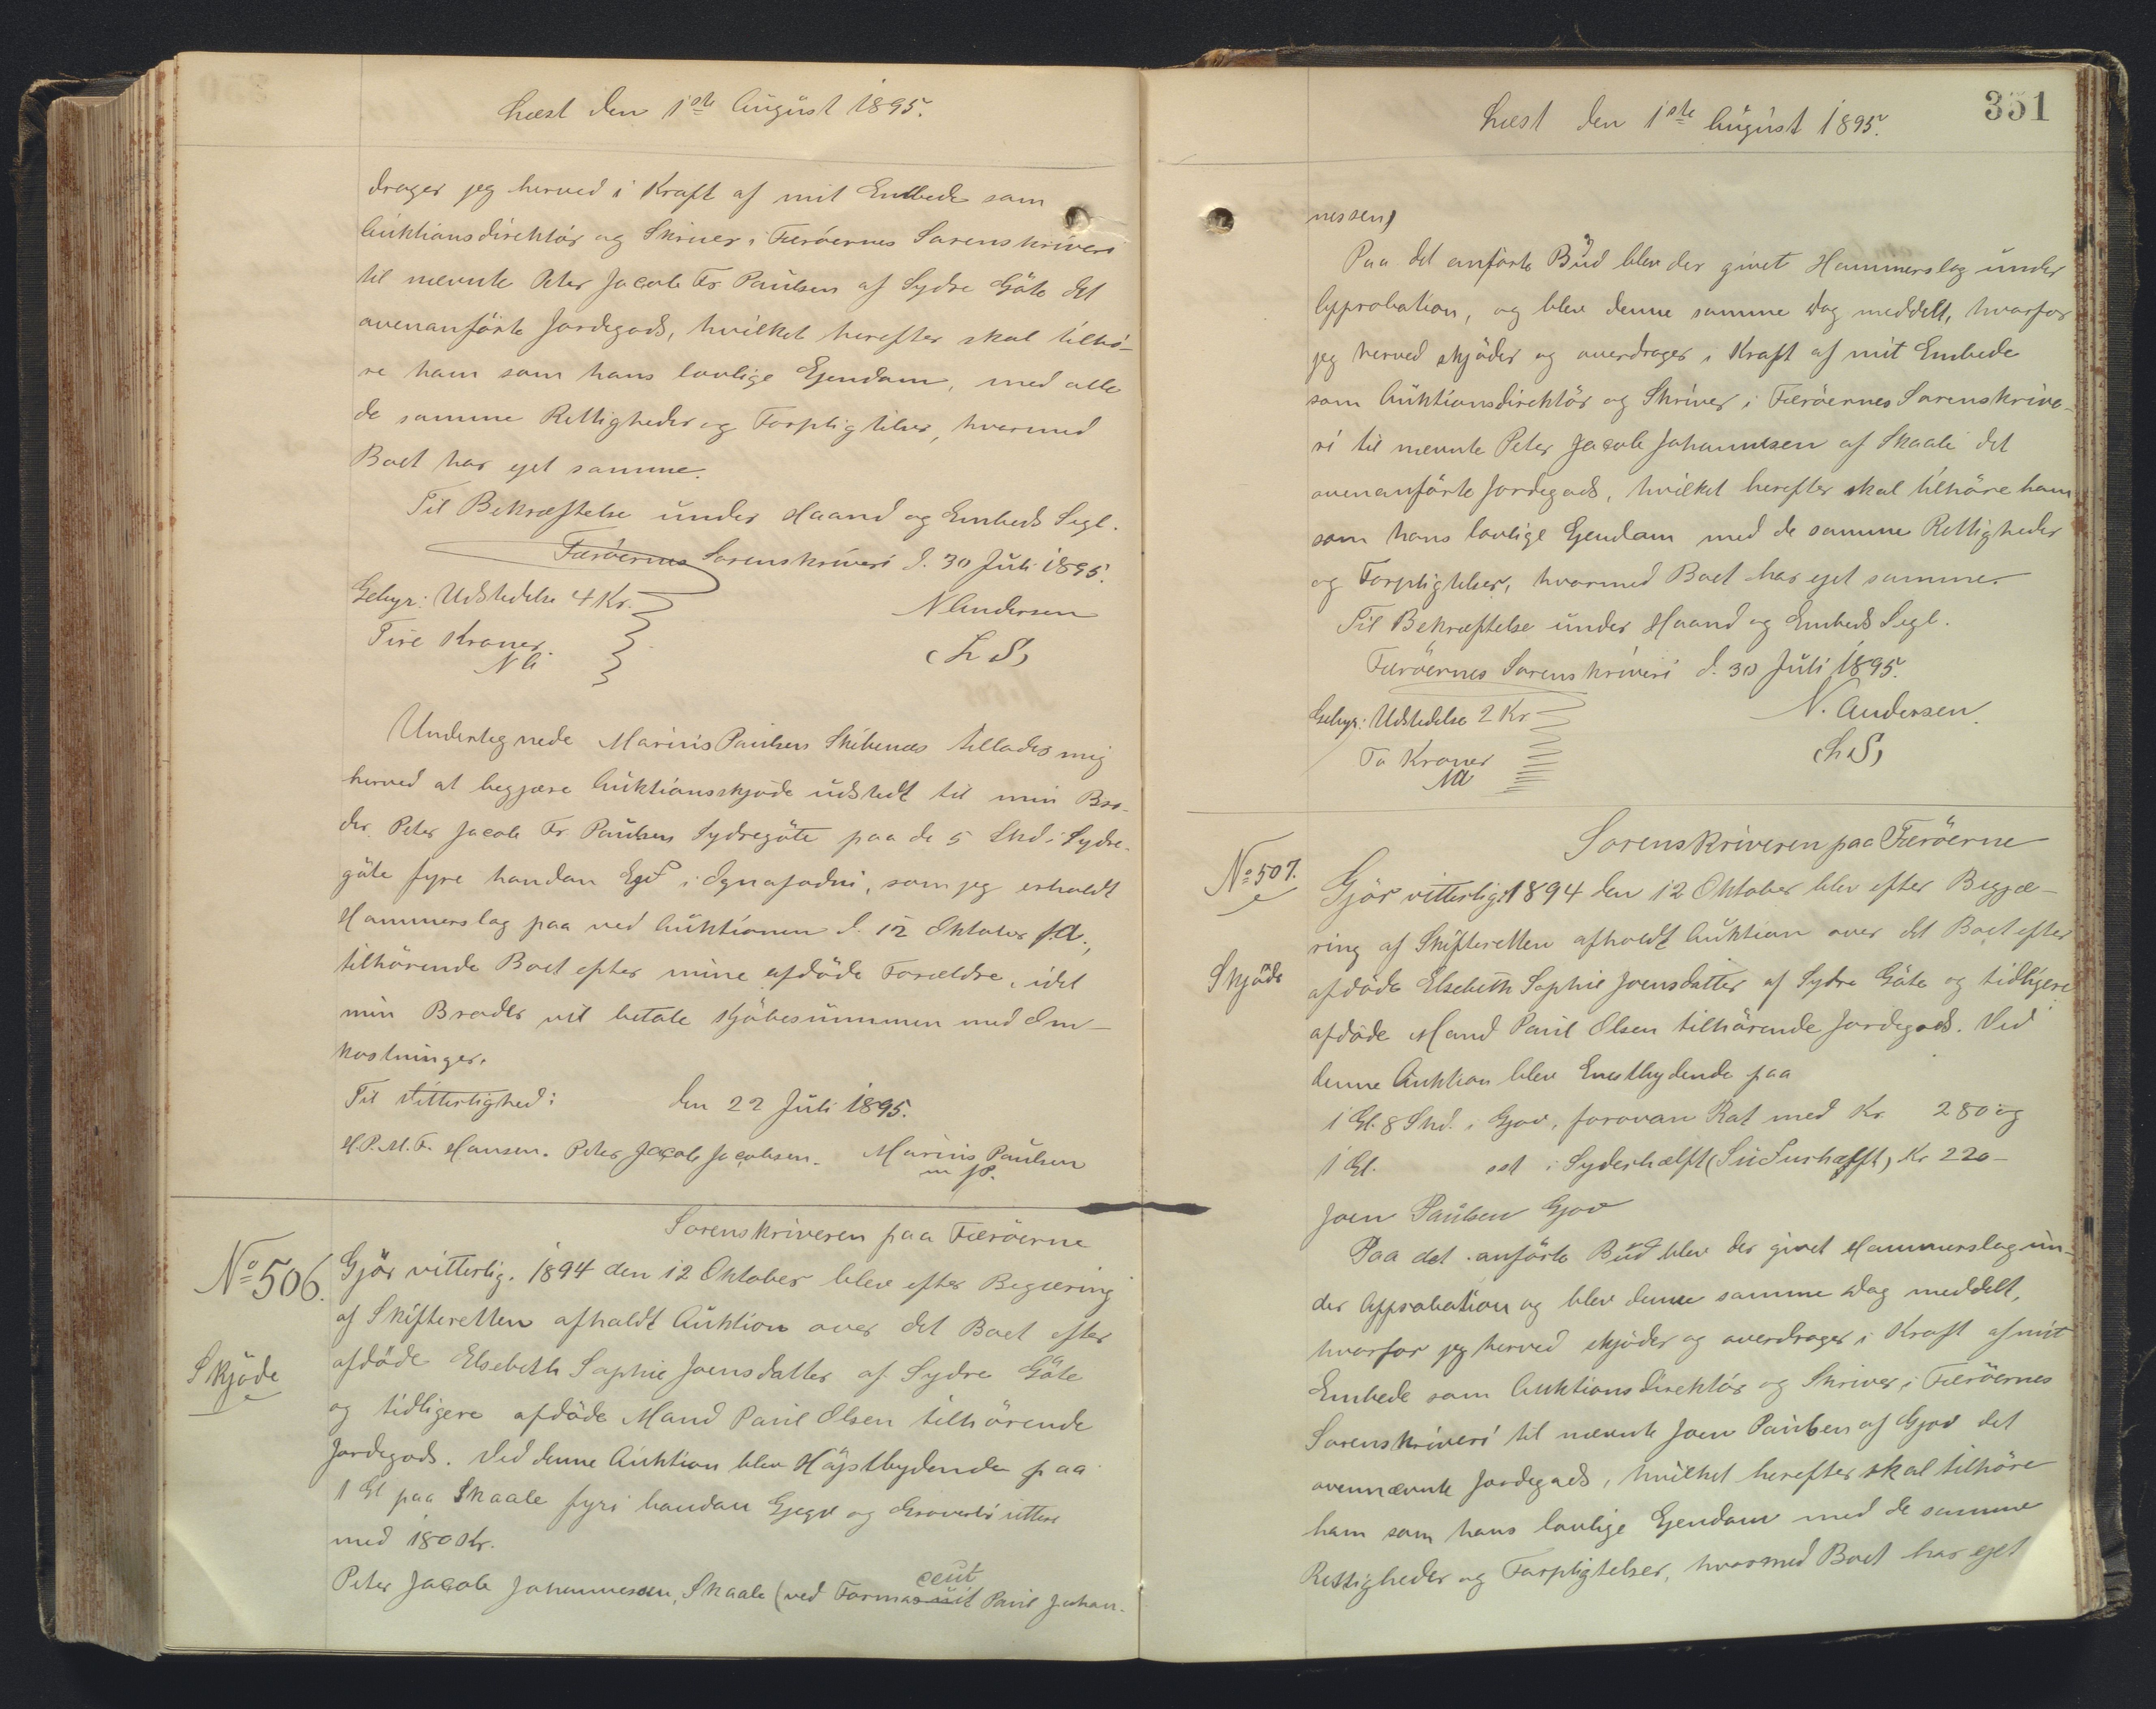 Læst den 1ste August 1895.
drager jeg herved i Kraft af mit Embede som
Auktionsdirektör og Skriver i Færöernes Sorenskriveri
til nævnte Peter Jacob Fr. Paulsen af Sydre Göte det
ovenanförte Jordegods, hvilket herefter skal tilhö-
re ham som hans lovlige Ejendom, med alle
de samme Rettigheder og Forpligtelser, hvormed
Boet har ejet samme.
Til Bekræftelse under Haand og Embeds Segl.
Færöernes Sorenskriveri d. 30 Juli 1895.
Gebyr: Udstedelse 4 Kr.
N Andersen
Fire Kroner.
(L S)
N A
Undertegnede Marius Paulsen Skibenæs tillader mig
herved at begjære Auktionsskjöde udstedt til min Bro-
der Peter Jacob Fr. Paulsen Sydregöte paa de 5 Skd. i Sydre-
göte fyre handan Egd i Ognajodni, som jeg erholdt
Hammerslag paa ved Auktionen d. 12 Oktober f.A.,
tilhörende Boet efter mine afdöde Forældre, idet
min Broder vil betale Kjöbesummen med Om-
kostninger.
Til Vitterlighed:
den 22 Juli 1895.
H.P.M.F. Hansen. Peter Jacob Jacobsen. Marius Paulsen
m p.
Sorenskriveren paa Færöerne
No 506.
Gjör vitterlig. 1894 den 12 Oktober blev efter Begjæring
af Skifteretten afholdt Auktion over det Boet efter
Skjöde
afdöde Elsebeth Sophie Joensdatter af Sydre Göte
og tidligere afdöde Mand Paul Olsen tilhörende
Jordegods. Ved denne Auktion blev Höjstbydende paa
1 Gl paa Skaale fyri handan Gjegv og Groverbö uttere
med 180 Kr.
cent
Peter Jacob Johannesen, Skaale (ved Formasuit Paul Johan-
351
Læst den 1ste August 1895.
nessen)
Paa det anförte Bud blev der givet Hammerslag under
Approbation, og blev denne samme Dag meddelt, hvorfor
jeg herved skjöder og overdrager i Kraft af mit Embede
som Auktionsdirektör og Skriver i Færöernes Sorenskrive-
ri til nævnte Peter Jacob Johannesen af Skaale det
ovenanförte Jordegods, hvilket herefter skal tilhöre ham
som hans lovlige Ejendom med de samme Rettigheder
og Forpligtelser, hvormed Boet har ejet samme.
Til Bekræftelse under Haand og Embeds Segl.
Færöernes Sorenskriveri d. 30 Juli 1895.
Gebyr: Udstedelse 2 Kr
N. Andersen.
To Kroner
(L S)
NA
Sorenskriveren paa Færöerne
No 507.
Gjör vitterligt 1894 den 12 Oktober blev efter Begjæ-
ring af Skifteretten afholdt Auktion over det Boet efter
Skjöde
afdöde Elsebeth Sophie Joensdatter af Sydre Göte og tidligere
afdöde Mand Paul Olsen tilhörende Jordegods. Ved
denne Auktion blev Enestbydende paa
1 Gl. 8 Skd. i Gjov, forovan Rat med Kr. 280 og
1 Gl. sst i Sydeshælft (Sudurhafft) Kr 220 -
Joen Paulsen Gjov
Paa det anförte Bud blev der givet Hammerslag un-
der Approbation og blev denne samme Dag meddelt,
hvorfor jeg herved skjöder og overdrager i Kraft af mit
Embede som Auktionsdirektör og Skriver i Færöernes
Sorenskriveri til nævnte Joen Paulsen af Gjov det
ovennævnte Jordegods, hvilket herefter skal tilhöre
ham som hans lovlige Ejendom med de samme
Rettigheder og Forpligtelser, hvormed Boet har ejet